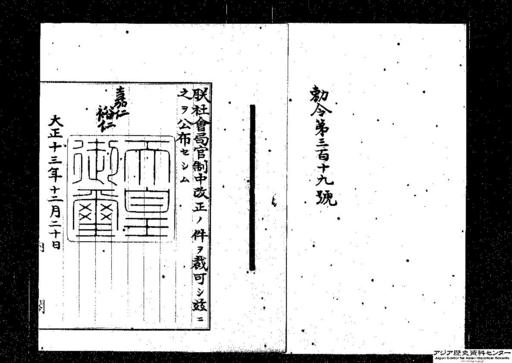 勅令第三百十九號
朕社會局官制中改正ノ件ヲ裁可シ茲ニ
之ヲ公布セシム
嘉仁
裕仁
天皇
御璽
大正十三年十二月二十日
内閣
アジア歴史資料センター
Japan Center for Asian Historical Records